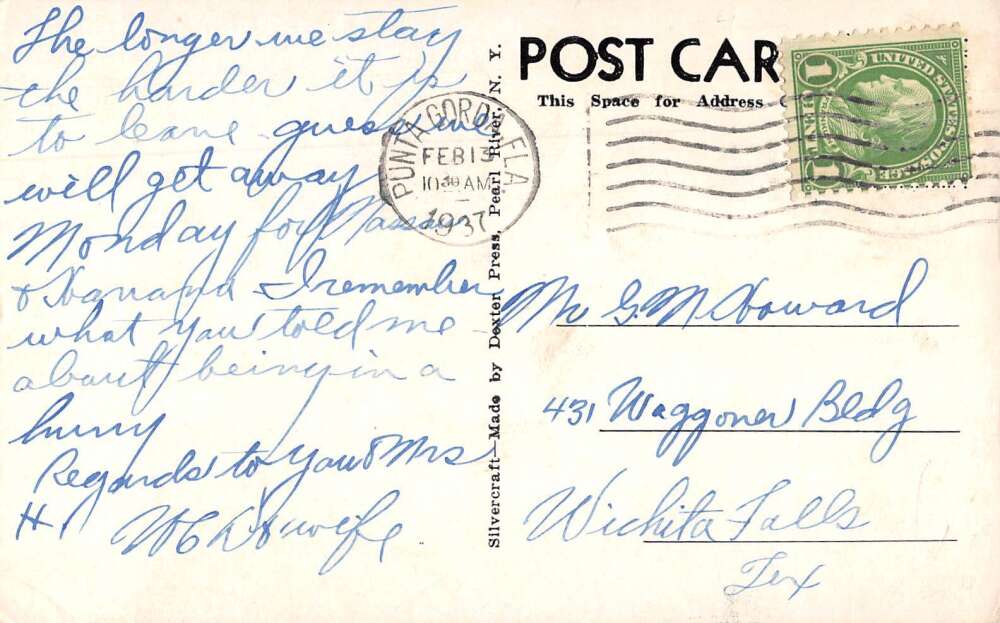 The longer we stay
the harder it is
to leave guess we
will get away
Monday for Nassau
& Havana I remember
what you told me
about being in a
hurry
Regards to you & Mrs
H.
& wife
Silvercraft—Made by Dexter Press, Pearl River, N. Y.
POST CAR
This Space for Address
PUNTA GORDA FLA
FEB 13
10 30 AM
1937
UNITED STATES POSTAGE
1
Mr G. M Howard
431 Waggoner Bldg
Wichita Falls
Tex